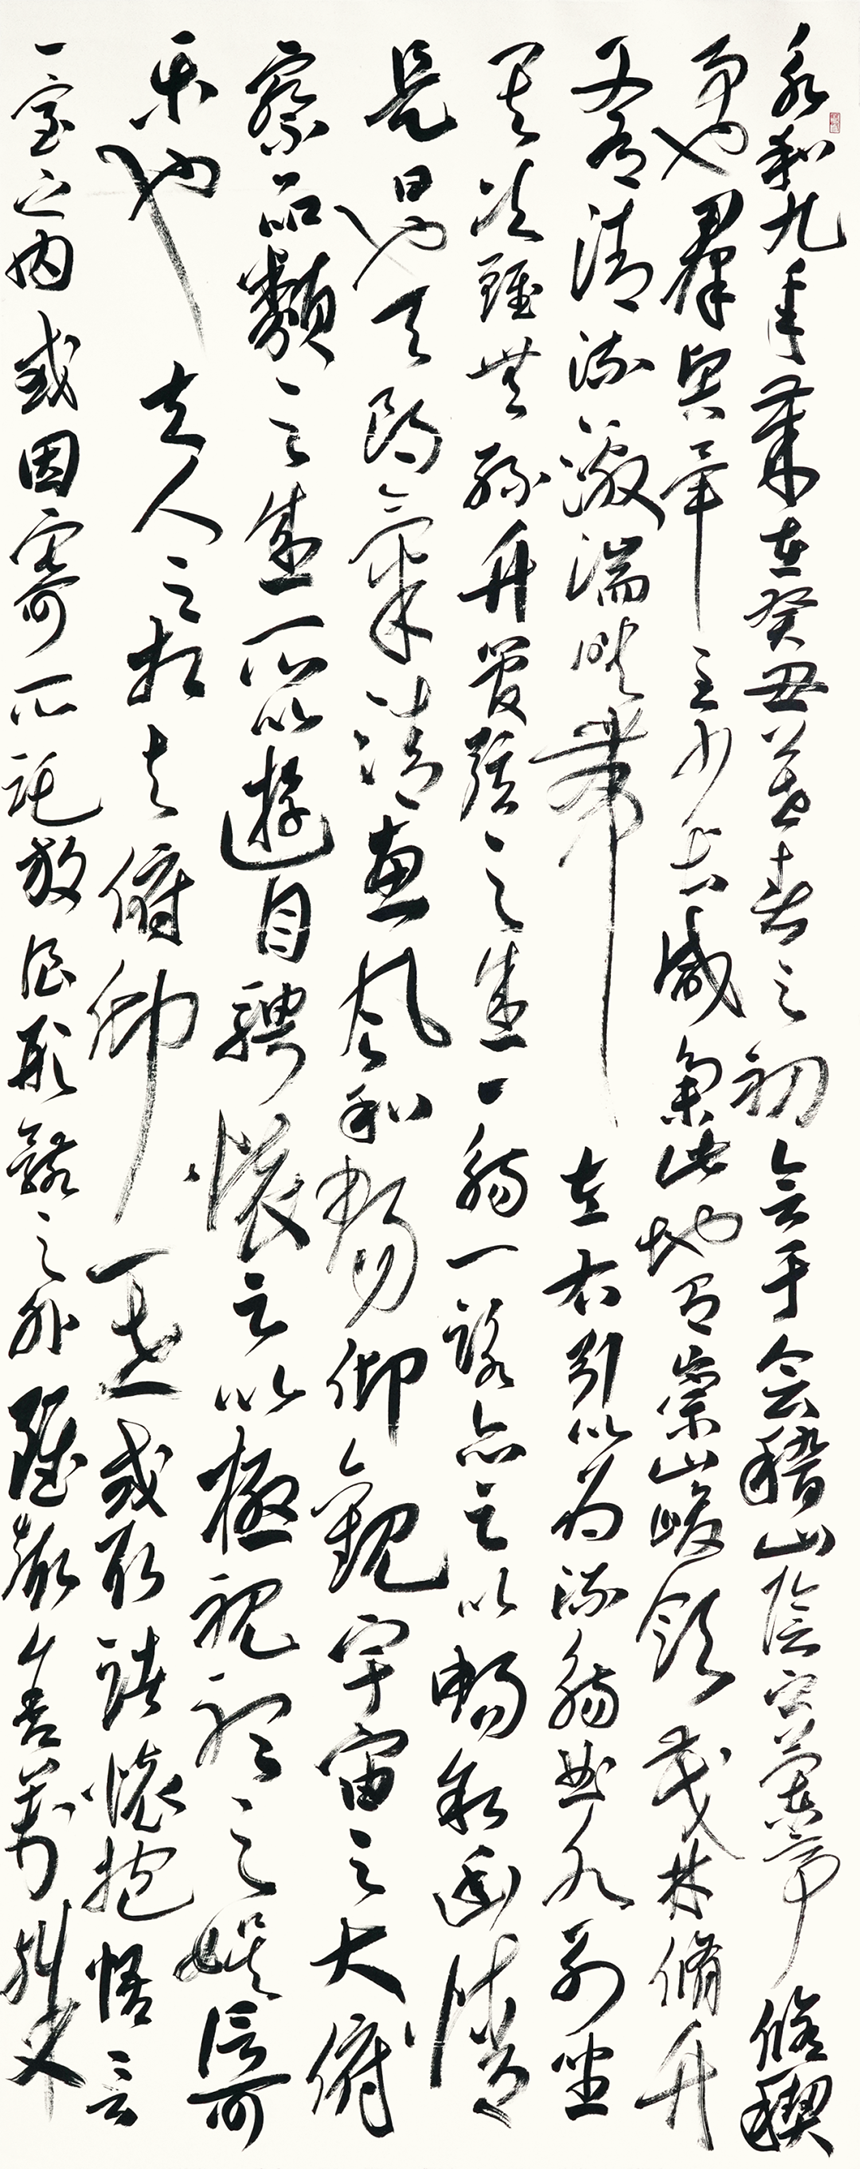 永和九年歲在癸丑暮春之初會于會稽山陰之蘭亭脩禊
事也羣賢畢至少長咸集此地有崇山峻領茂林脩竹
又有清流激湍映帶左右引以為流觴曲水列坐
其次雖無絲竹管弦之盛一觴一詠亦足以暢敘幽情
是日也天朗氣清惠風和暢仰觀宇宙之大俯
察品類之盛所以遊目騁懷足以極視聽之娛信可
樂也夫人之相與俯仰一世或取諸懷抱悟言
一室之內或因寄所託放浪形骸之外雖趣舍萬殊